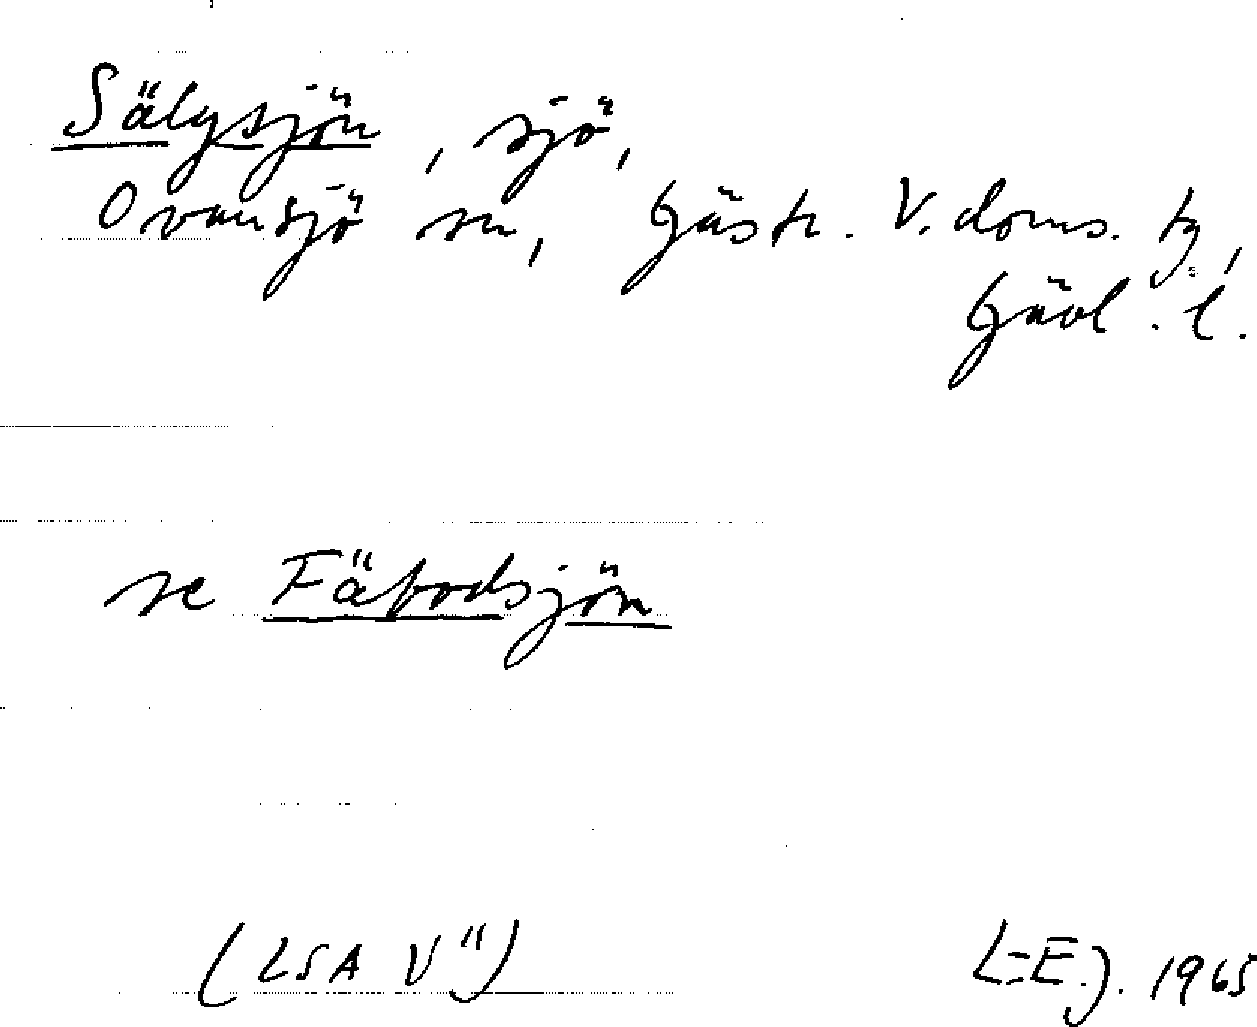 Sälgsjön, sjö,
Ovansjö sn, Gästr. V. doms. tg,
Gävl. l.
se Fäbodsjön
(LSA V")
L-E. J. 1965